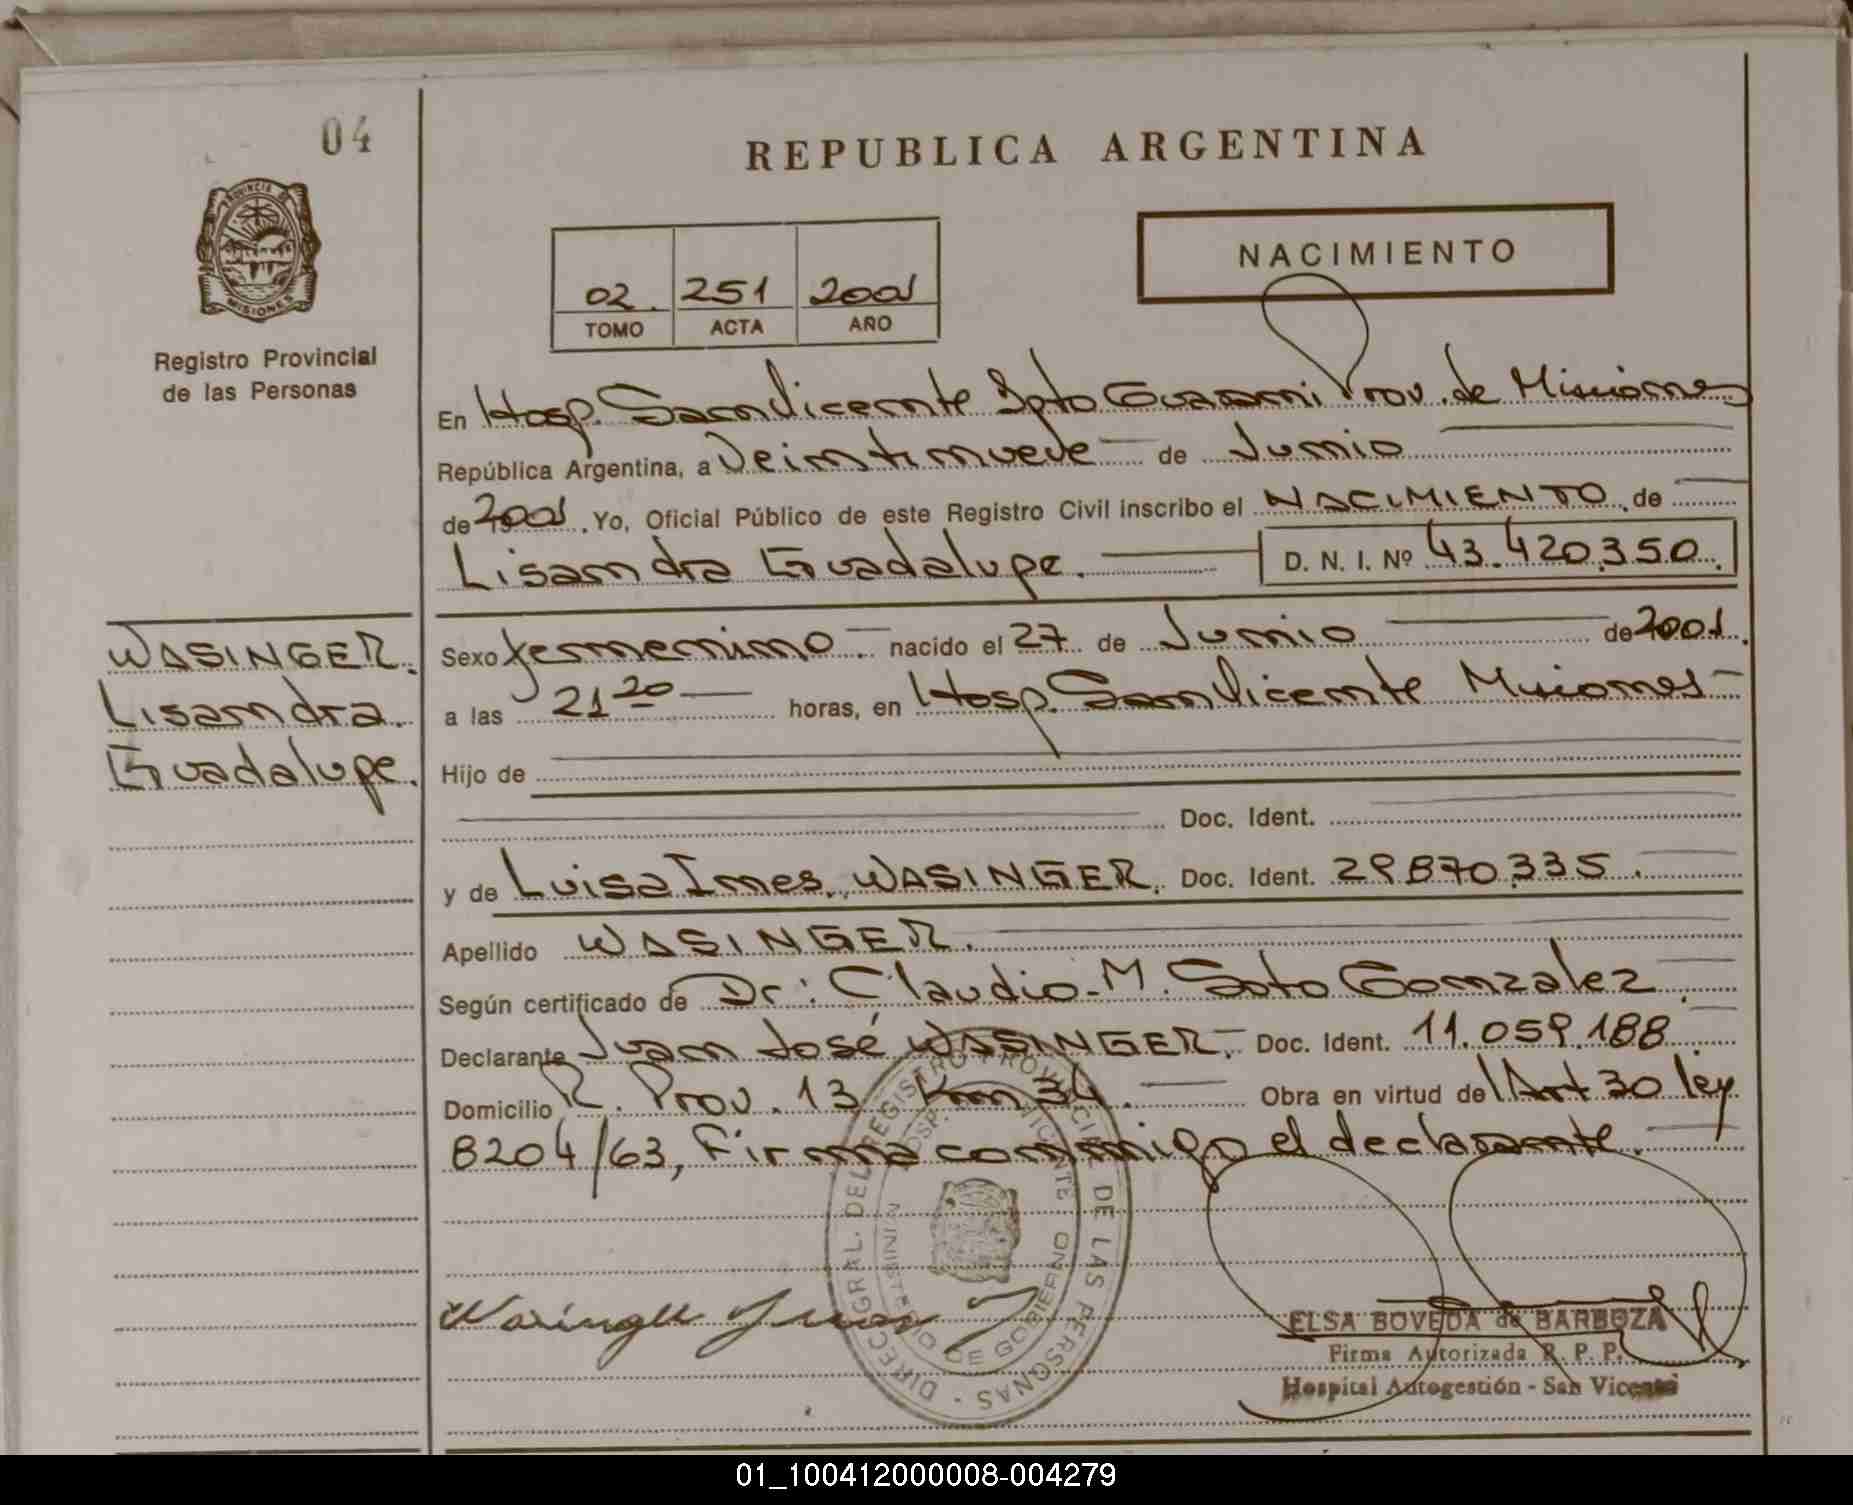 04
REPUBLICA ARGENTINA
PROVINCIA DE
MISIONES
NACIMIENTO
02. 251 2001
TOMO ACTA AÑO
Registro Provincial
de las Personas
En Hosp. San Vicente Dpto Guarani Prov. de Misiones
República Argentina, a Veintinueve de Junio
de 2001. Yo, Oficial Público de este Registro Civil inscribo el NACIMIENTO de
Lisandra Guadalupe. D. N. I. Nº 43.420.350.
WASINGER.
Lisandra.
Guadalupe.
Sexo femenino nacido el 27 de Junio de 2001.
a las 21 20 horas, en Hosp. San Vicente Misiones
Hijo de
Doc. Ident.
y de Luisa Ines. WASINGER. Doc. Ident. 29.870.335.
Apellido WASINGER.
Según certificado de Dr: Claudio M. Soto Gonzalez
Declarante Juan José WASINGER. Doc. Ident. 11.059.188
Domicilio R. Prov. 13 Km 34. Obra en virtud de l Art 30 ley
8204/63, Firma conmigo el declarante.
DIREC. GRAL. DEL REGISTRO PROVINCIAL DE LAS PERSONAS -
HOSP. VICENTE
MINISTERIO DE GOBIERNO
Wasinger Juan J
ELSA BOVEDA de BARBOZA
Firma Autorizada R. P. P.
Hospital Autogestión - San Vicente
01_100412000008-004279